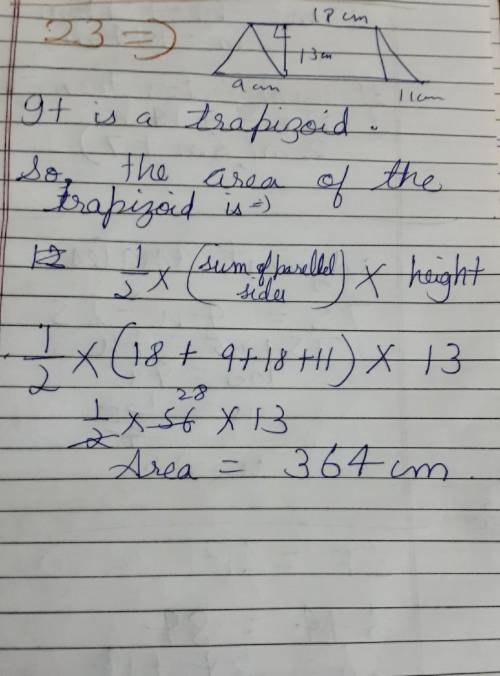 23 =)
18 cm
13cm
9 cm
11 cm
It is a trapizoid.
So, the area of the
trapizoid is =)
1/2 × (sum of parellel sides) × height
1/2 × (18 + 9+18+11) × 13
28
1/2 × 56 × 13
Area = 364 cm.